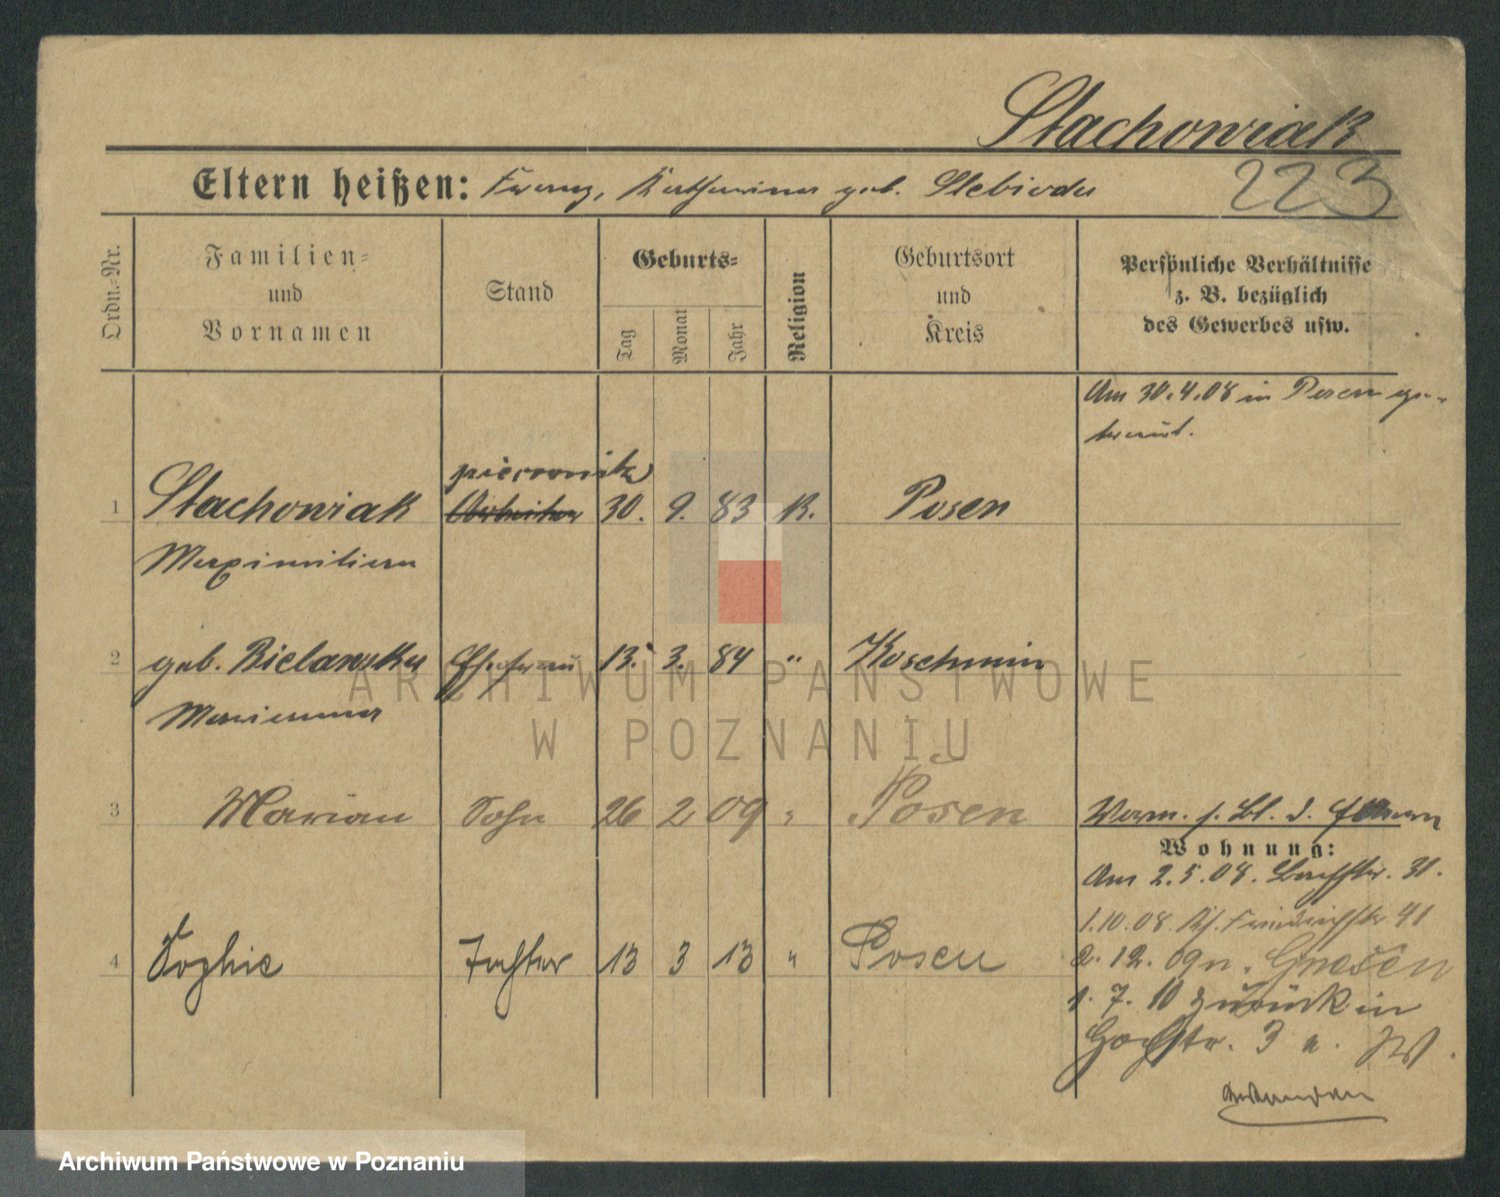 Stachowiak
Eltern heißen: Franz, Katharina geb. Slebioda
223
Ordn.-Nr.
Familien- und Vornamen
Stand
Geburts-
Tag Monat Jahr
Religion
Geburtsort und Kreis
Persönliche Verhältnisse
z. B. bezüglich
des Gewerbes usw.
Am 30.4.08 in Posen ge-
traut.
piernik
1 Stachowiak Arbeiter 30. 9. 83 K. Posen
Maximilian
2 geb. Bielawska Ehefrau 13. 3. 84 " Koschmin
Marianna
3 Marian Sohn 26 2 09 " Posen
Verm. s. Bl. d.
Wohnung:
Am 2.5.08. 31.
1.10.08. Friedrichstr 41
4 Sophie Tochter 13 3 13 " Posen
2. 12. 09 n. Gnesen
1. 7. 10 zurück in
3 a.
ARCHIWUM PAŃSTWOWE
W POZNANIU
Archiwum Państwowe w Poznaniu